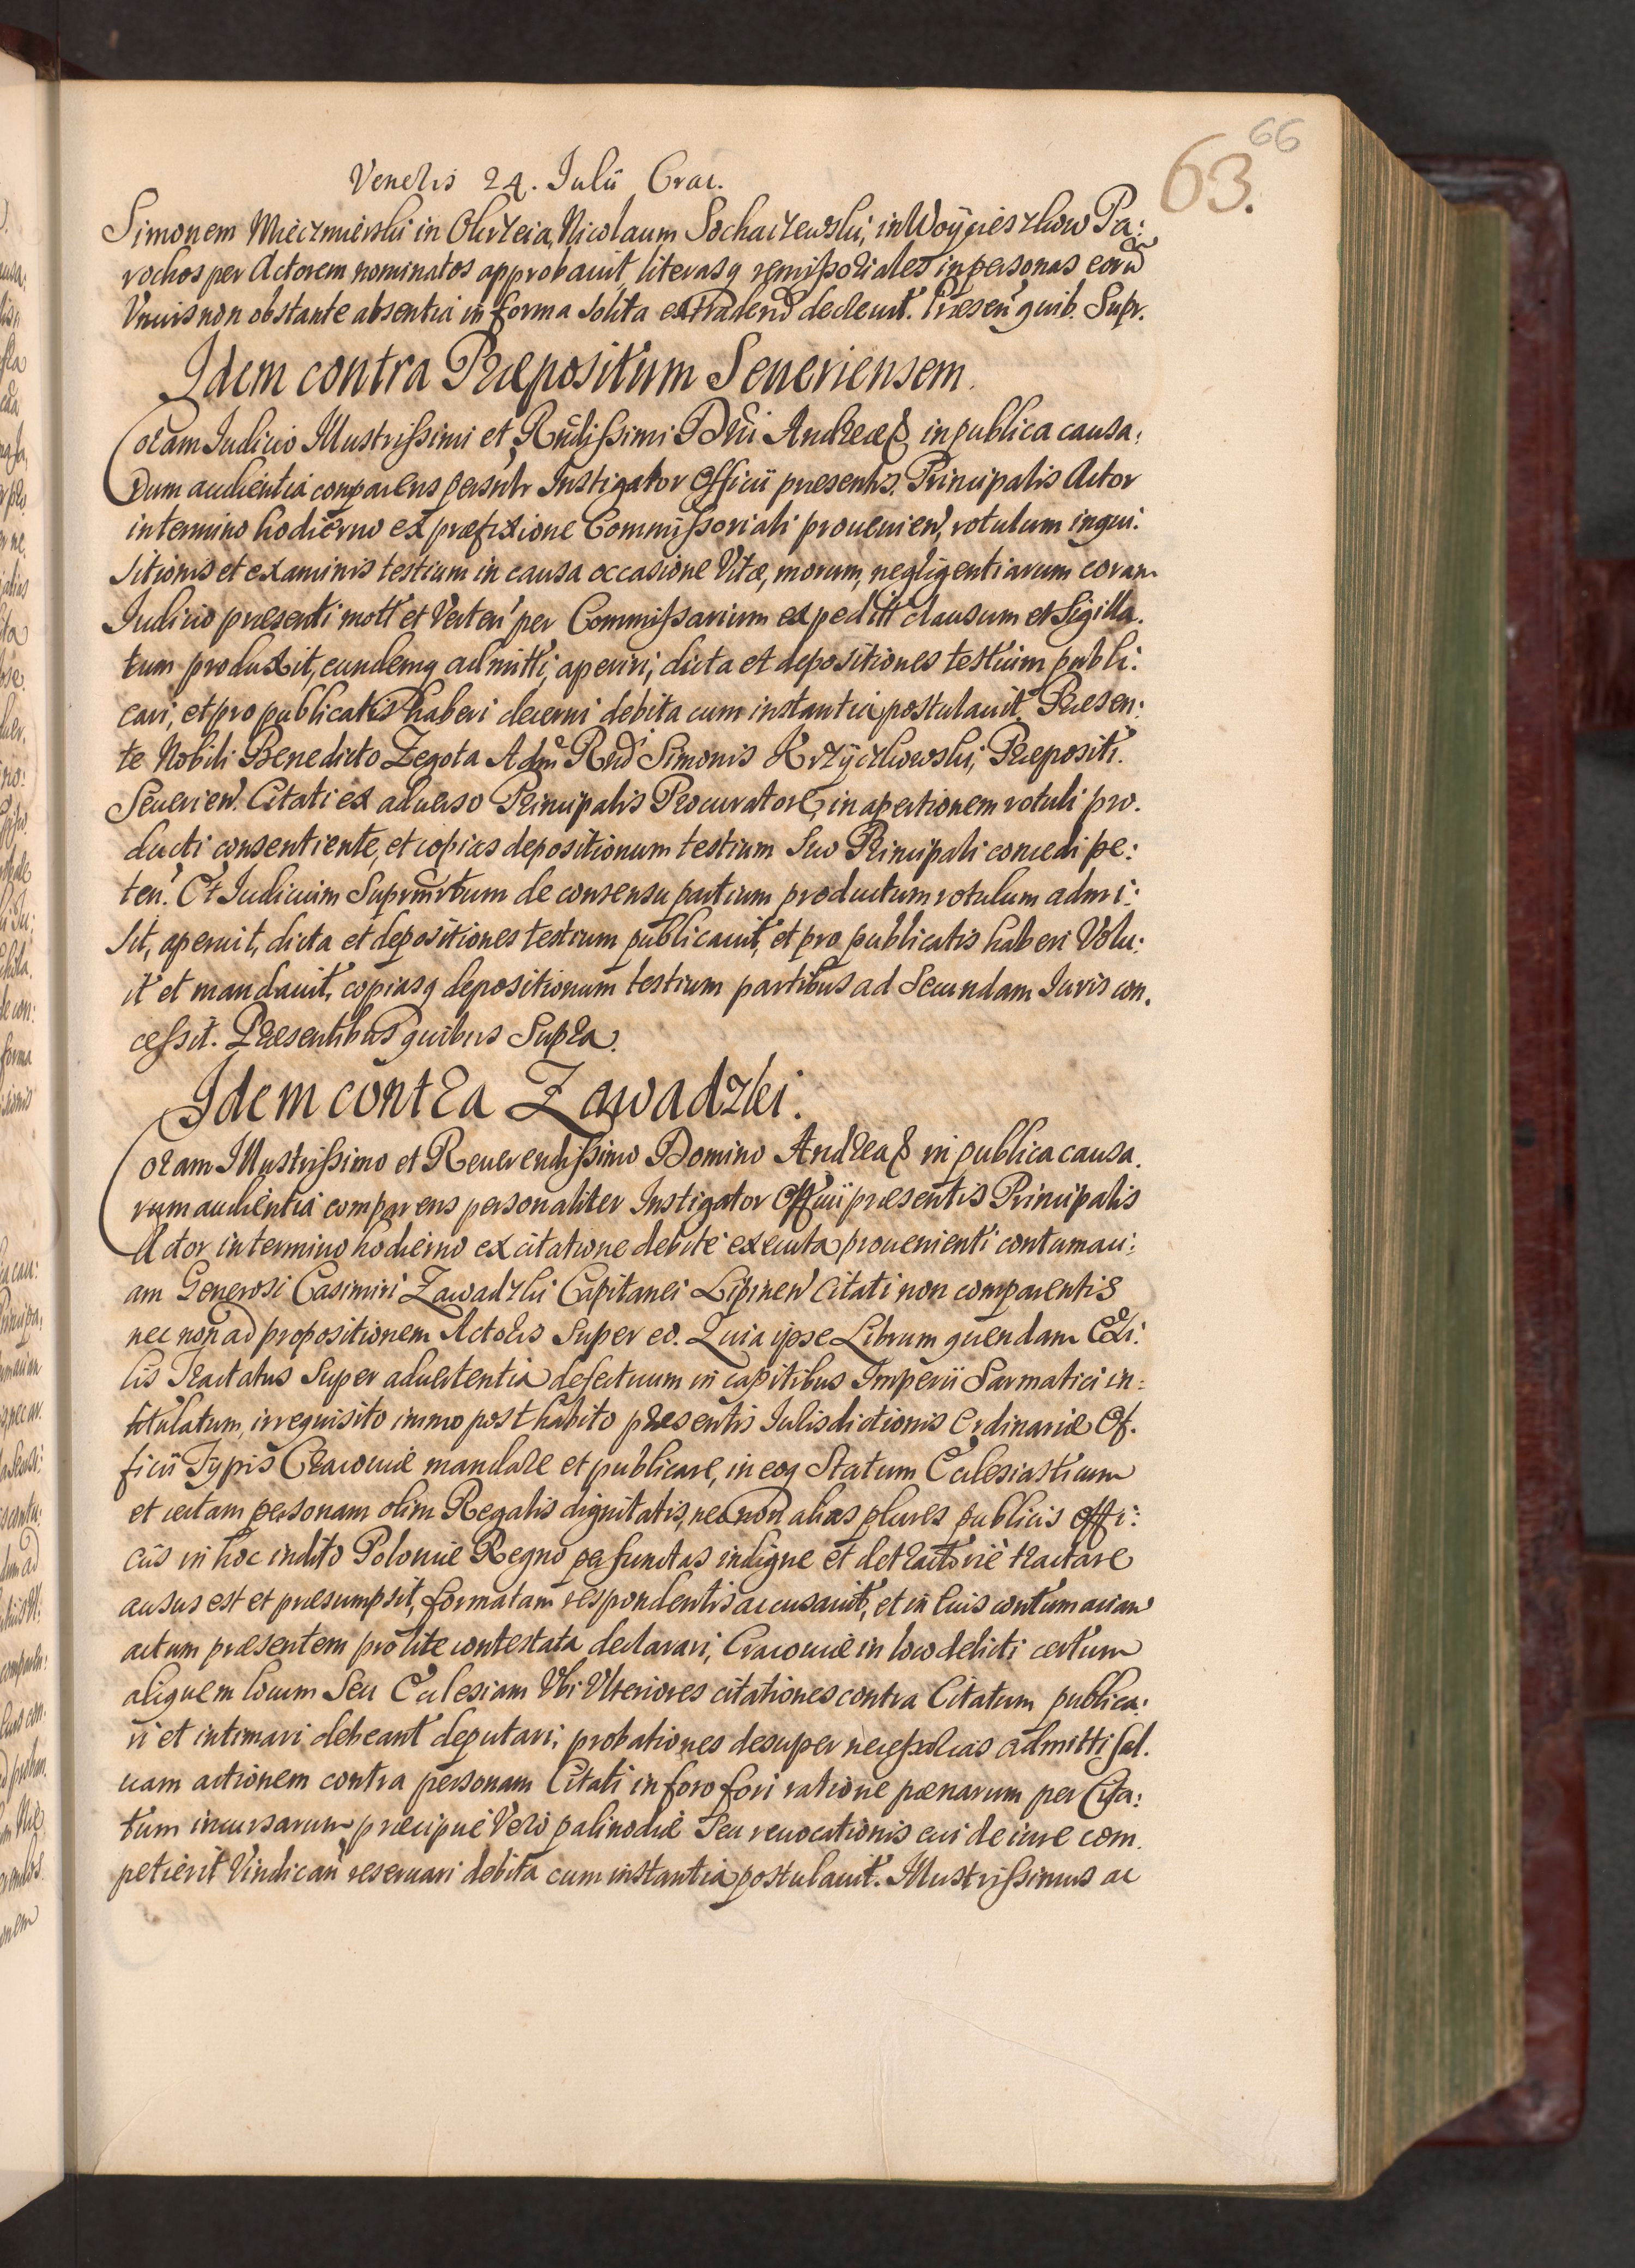 66
63.
Veneris 24. Julii Crac.
Simonem Miecznierski in Okrzeia, Nicolaum Sochaczewski, in Woÿcieszkow Pa:
rochos per Actorem nominatos approbauit, literasq remissoriales in personas eorū
Vnius non obstante absentia in forma solita extradend decreuit. Præsen quib. Supr.
Idem contra Præpositum Seueriensem.
Coram Iudicio Illustrissimi et Rndissimi Dni Andreæ in publica causa:
rum audientia comparens personlr Instigator Officii præsentis Principalis Actor
in termino hodierno ex præfixione Commissoriali prouenien, rotulum inqui:
sitionis et examinis testium in causa occasione Vitæ, morum, negligentiarum coram
Iudicio præsenti mott et Verten per Commissarium expeditt clausum et Sigilla.
tum produxit, eundemq admitti, aperiri, dicta et depositiones testium publi:
cari, et pro publicatis haberi decerni debita cum instantia postulauit. Præsen:
te Nobili Benedicto Zegota Adm Rnd Simonis Krzÿczkowski, Præpositi
Seuerien. Citati ex aduerso Principalis Procuratore, in apertionem rotuli pro.
ducti consentiente, et copias depositionum testium Suo Principali concedi pe:
ten. Et Iudicium Suprmrtum de consensu partium productum rotulum admi:
sit, aperuit, dicta et depositiones testium publicauit, et pro publicatis haberi Volu:
it et mandauit, copiasq depositionum testium partibus ad Secundam Iuris con.
cessit. Præsentibus quibus Supra.
Idem contra Zawadzki.
Coram Illustrissimo et Reuerendissimo Domino Andrea in publica causa.
rum audientia comparens personaliter Instigator Officii præsentis Principalis
Actor in termino hodierno ex citatione debite executa prouenienti contumaci:
am Generosi Casimiri Zawadzki Capitanei Lipinen Citati non comparentis
nec non ad propositionem Actoris Super eo. Quia ipse Librum quendam Exi:
lis Tractatus Super aduertentia defectuum in capitibus Imperii Sarmatici in:
titulatum, irrequisito immo posthabito præsentis Iurisdictionis Ordinariæ Of.
ficii Typis Cracouiæ mandare et publicare, in eoq Statum Ecclesiasticum
et certam personam olim Regalis dignitatis, nec non alias plures publicis Offi:
ciis in hoc inclito Poloniæ Regno perfunctas indigne et detractorie tractare
ausus est et præsumpsit, formatam respondentis accusauit, et in euis contumaciam
actum præsentem pro lite contestata declarari, Cracouiæ in loco delicti certum
aliquem locum Seu Ecclesiam Vbi Vlteriores citationes contra Citatum publica:
ri et intimari debeant deputari, probationes desuper necessarias admitti sal.
uam actionem contra personam Citati in foro fori ratione pænarum per Cita:
tum incursarum, præcipue Vero palinodiæ Seu reuocationis cui de iure com.
petierit Vindican reseruari debita cum instantia postulauit. Illustrissimus ac